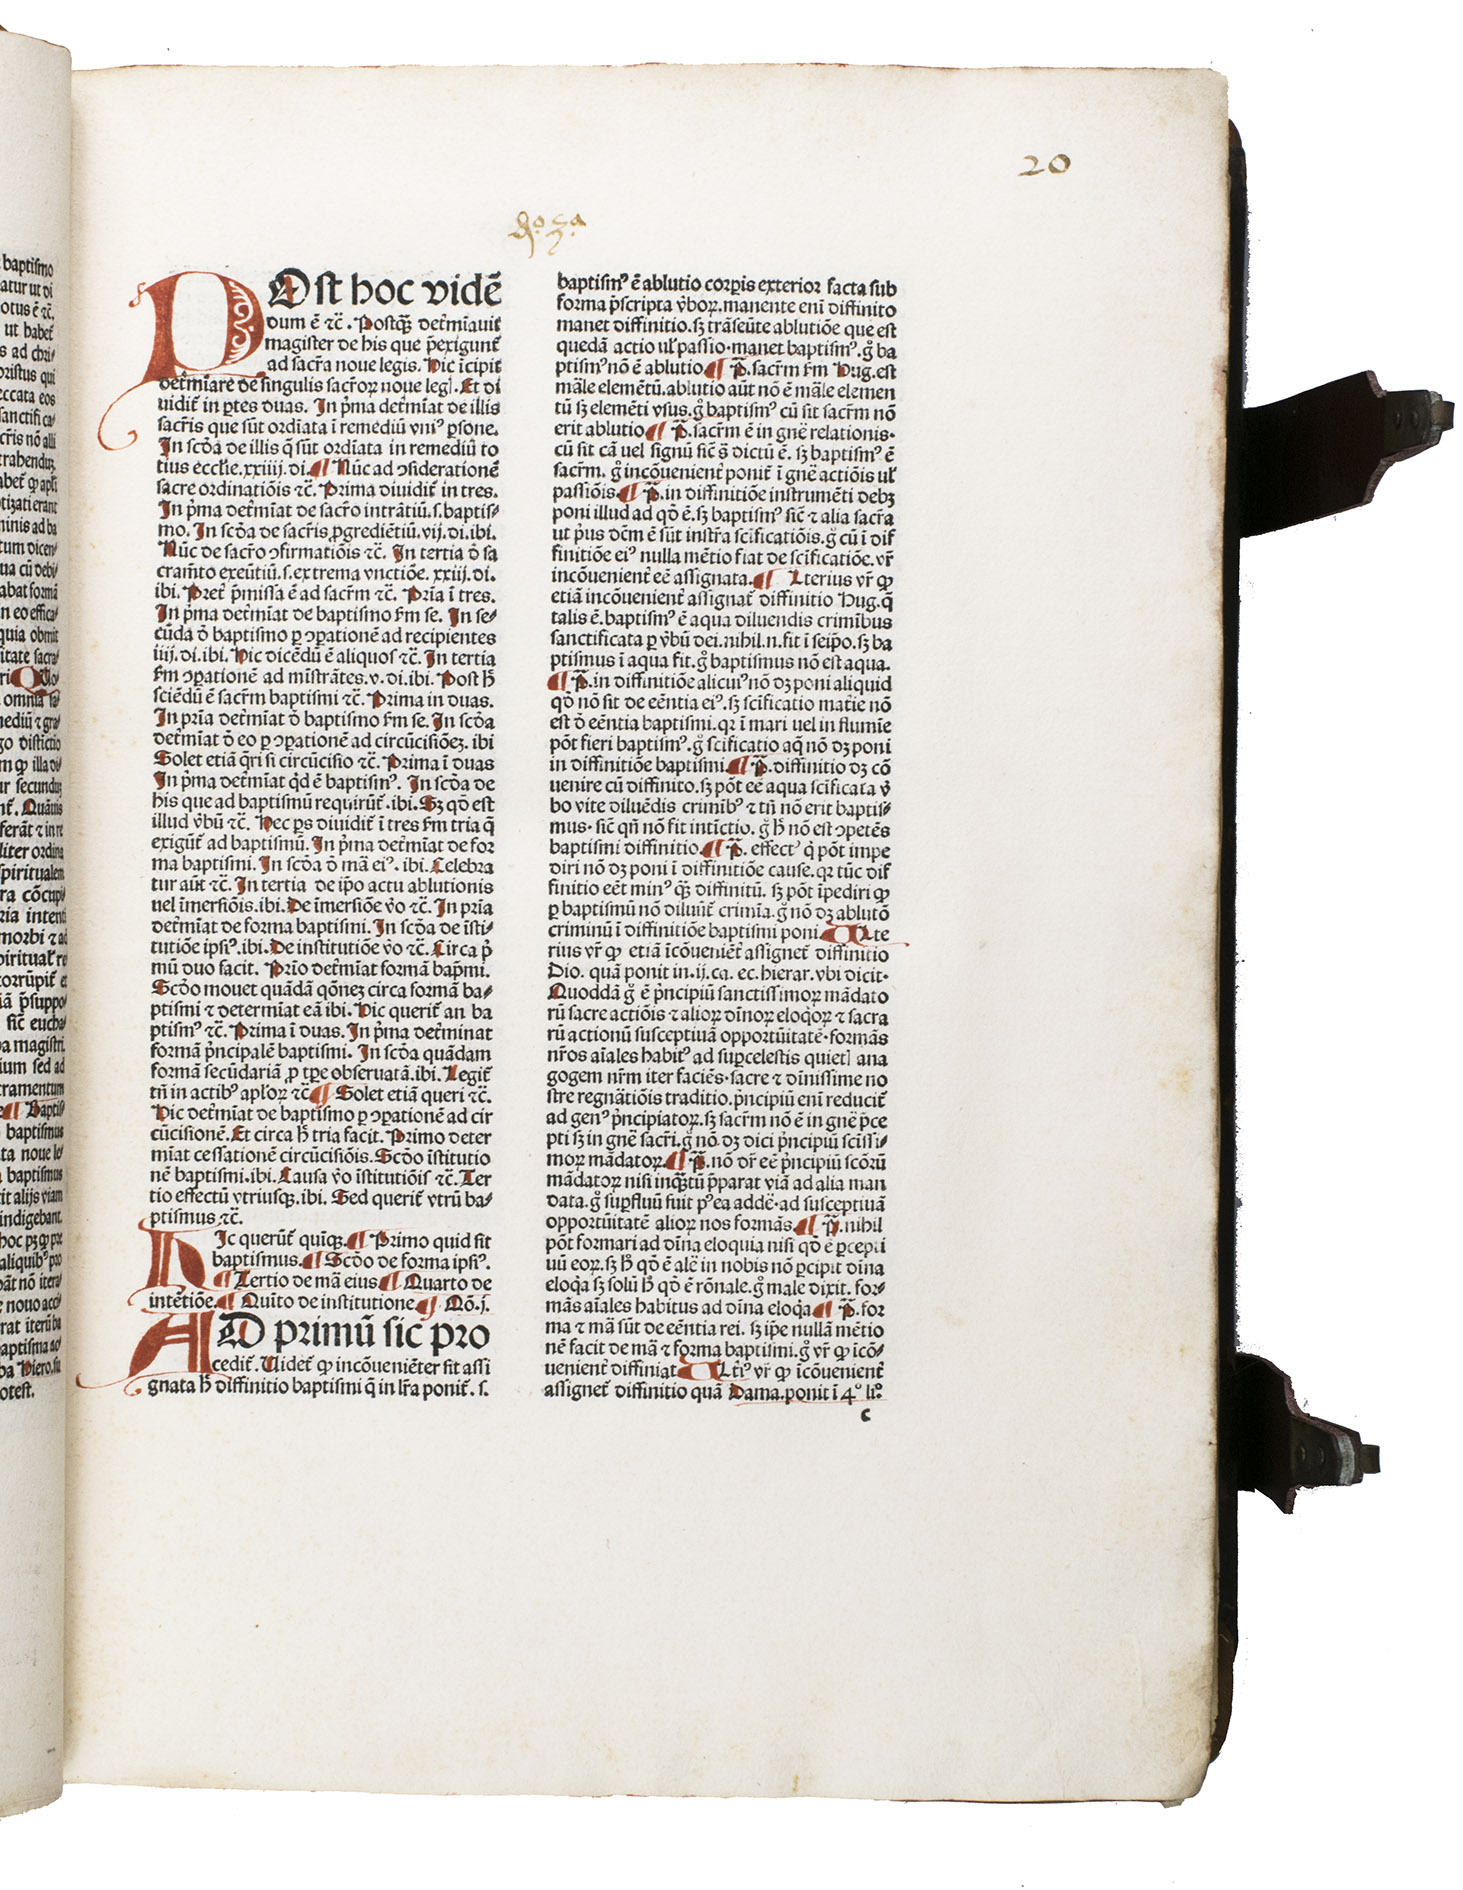 baptismo
atur ut di
otus ē ⁊c̄.
ut habet̄
s ad chri⸗
oristus qui
eccata eos
sanctifica⸗
cr̄is nō alli
trahenduꝫ
tizati erant
minis ad ba
tum dicen⸗
ua cū debi⸗
abat formā
n eo effica⸗
quia obmit
itate sacra⸗
omnia sa⸗
mediū ⁊ gra⸗
go distīctio
m ꝙ illa di⸗
ur secunduꝫ
nt̄. Quāuis
ferāt ⁊ in re
liter ordina
spiritualem
ra cōcupi⸗
ria intenti
morbi ⁊ ad
corrūpit̄
iā p̄suppo
sic̄ eucha⸗
a magistri
ium sed ad
cramentum
¶ Baptis⸗
baptismus
ta noue le⸗
baptismus
it alijs viam
indigebant
hoc pꝫ ꝙ pre
aliquibꝰ pro
pāt nō itera⸗
e nouo acci⸗
rat iterū ba
aptisma ad
ba Hiero. su
otest.
20
do. 3a.
POst hoc vidē
dum ē ⁊c̄. Postqꝫ̄ det̄mīauit
magister de his que p̄exigunt̄
ad sacr̄a noue legis. Hic īcipit
det̄mīare de singulis sacr̄oꝝ noue legꝭ. Et di
uidit̄ in ꝑtes duas. In pͥma det̄mīat de illis
sacr̄is que sūt ordīata ī remediū vniꝰ ꝑsone.
In scd̄a de illis q̄ sūt ordīata in remediū to
tius eccłie. xxiiij. di. ¶ Nūc ad ↄsiderationē
sacre ordinatiōis ⁊c̄. Prima diuidit̄ in tres.
In pͥma det̄mīat de sacr̄o intrātiū. s. baptis⸗
mo. In scd̄a de sacr̄is ꝓgrediētiū. vij. di. ibi.
Nūc de sacr̄o ↄfirmatiōis ⁊c̄. In tertia d̄ sa
cram̄to exeūtiū. s. extrema vnctiōe. xxiij. di.
ibi. Pret̄ p̄missa ē ad sacr̄m ⁊c̄. Pr̄ia ī tres.
In pͥma det̄mīat de baptismo s̄m se. In se⸗
cūda d̄ baptismo ꝑ ↄꝑationē ad recipientes
iiij. di. ibi. Hic dicēdū ē aliquos ⁊c̄. In tertia
s̄m ↄꝑationē ad mīstrātes. v. di. ibi. Post h̄
sciēdū ē sacr̄m baptismi ⁊c̄. Prima in duas.
In pr̄ia det̄mīat d̄ baptismo s̄m se. In scd̄a
det̄mīat d̄ eo ꝑ ↄꝑationē ad circūcisiōeꝫ. ibi
Solet etiā q̄ri si circūcisio ⁊c̄. Prima ī duas
In pͥma det̄mīat qͥd ē baptismꝰ. In scd̄a de
his que ad baptismū requirūt̄. ibi. Sꝫ qd̄ est
illud v̄bū ⁊c̄. Hec ꝑs diuidit̄ ī tres s̄m tria q̄
exigūt̄ ad baptismū. In pͥma det̄mīat de for
ma baptismi. In scd̄a d̄ mā eiꝰ. ibi. Celebra
tur aūt ⁊c̄. In tertia de ip̄o actu ablutionis
uel īmersiōis. ibi. De īmersiōe v̄o ⁊c̄. In pr̄ia
det̄mīat de forma baptismi. In scd̄a de īsti⸗
tutiōe ipsiꝰ. ibi. De institutiōe v̄o ⁊c̄. Circa pͥ
mū duo facit. Pr̄io det̄mīat formā bap̄mi.
Scd̄o mouet quādā qōneꝫ circa formā ba⸗
ptismi ⁊ determīat eā ibi. Hic querit̄ an ba
ptismꝰ ⁊c̄. Prima ī duas. In pͥma det̄minat
formā pͥncipalē baptismi. In scd̄a quādam
formā secūdariā, ꝓ tꝑe obseruatā. ibi. Legit̄
tn̄ in actibꝰ apl̄oꝝ ⁊c̄ ¶ Solet etiā queri ⁊c̄.
Hic det̄mīat de baptismo ꝑ ↄꝑationē ad cir
cūcisionē. Et circa h̄ tria facit. Primo deter
mīat cessationē circūcisiōis. Scd̄o īstitutio
nē baptismi. ibi. Causa v̄o īstitutiōis ⁊c̄. Ter
tio effectū vtriusqꝫ. ibi. Sed querit̄ vtrū ba⸗
ptismus ⁊c̄.
HIc querūt̄ quīqꝫ. ¶ Primo quid sit
baptismus. ¶ Scd̄o de forma ipsiꝰ.
¶ Tertio de mā eius ¶ Quarto de
intētiōe. ¶ Quīto de institutione ¶ Qō. j.
AD primū sic pro
cedit̄. Videt̄ ꝙ incōueniēter sit assi
gnata h̄ diffinitio baptismi q̄ in lr̄a ponit̄. s.
baptismꝰ ē ablutio corꝑis exterior facta sub
forma p̄scripta v̄boꝝ. manente eni diffinito
manet diffinitio. sꝫ trāseūte ablutiōe que est
quedā actio ul̄ passio. manet baptismꝰ. gͦ ba
ptismꝰ nō ē ablutio ¶ P̄. sacr̄m s̄m Hug. est
māle elemētū. ablutio aūt nō ē māle elemen
tū sꝫ elemēti vsus. gͦ baptismꝰ cū sit sacr̄m nō
erit ablutio ¶ P̄. sacr̄m ē in gn̄e relationis.
cū sit cā uel signū sic̄ s̄ dictū ē. sꝫ baptismꝰ ē
sacr̄m. gͦ incōuenient̄ ponit̄ ī gn̄e actiōis ul̄
passiōis ¶ P̄. in diffinitiōe instrumēti debꝫ
poni illud ad qd̄ ē. sꝫ baptismꝰ sic̄ ⁊ alia sacr̄a
ut pͥus dc̄m ē sūt instr̄a sc̄ificatiōis. gͦ cū ī dif
finitiōe eiꝰ nulla mētio fiat de sc̄ificatiōe. vr̄
incōuenient̄ eē assignata. ¶ Lterius vr̄ ꝙ
etiā incōuenient̄ assignat̄ diffinitio Hug. q̄
talis ē. baptismꝰ ē aqua diluendis crimībus
sanctificata ꝑ v̄bū dei. nihil. n. fit ī seip̄o. sꝫ ba
ptismus ī aqua fit. gͦ baptismus nō est aqua.
¶ P̄. in diffinitiōe alicuiꝰ nō dꝫ poni aliquid
qd̄ nō sit de eēntia eiꝰ. sꝫ sc̄ificatio mat̄ie nō
est d̄ eēntia baptismi. qꝛ ī mari uel in flumīe
pōt fieri baptismꝰ. gͦ sc̄ificatio aq̄ nō dꝫ poni
in diffinitiōe baptismi ¶ P̄. diffinitio dꝫ cō
uenire cū diffinito. sꝫ pōt eē aqua sc̄ificata v̄
bo vite diluēdis crimībꝰ ⁊ tn̄ nō erit baptis⸗
mus. sic̄ qn̄ nō fit intīctio. gͦ h̄ nō est ↄpetēs
baptismi diffinitio. ¶ P̄. effectꝰ qͥ pōt impe
diri nō dꝫ poni ī diffinitiōe cause. qꝛ tūc dif
finitio eēt minꝰ qꝫ̄ diffinitū. sꝫ pōt īpediri ꝙ
ꝑ baptismū nō diluūt̄ crimīa. gͦ nō dꝫ ablutō
criminū ī diffinitiōe baptismi poni ¶ Vlte
rius vr̄ ꝙ etiā īcōuenient̄ assignet̄ diffinitio
Dio. quā ponit in. ij. ca. ec. hierar. vbi dicit.
Quoddā gͦ ē pͥncipiū sanctissimoꝝ mādato
rū sacre actiōis ⁊ alioꝝ dīnoꝝ eloqͥoꝝ ⁊ sacra
rū actionū susceptiuā opportūitatē. formās
nr̄os aīales habitꝰ ad suꝑcelestis quietꝭ ana
gogem nr̄m iter faciēs. sacre ⁊ dīnissime no
stre regnātiōis traditio. pͥncipiū enī reducit̄
ad genꝰ pͥncipiatoꝝ. sꝫ sacr̄m nō ē in gn̄e p̄ce
pti sꝫ in gn̄e sacr̄i. gͦ nō dꝫ dici pͥncipiū sc̄issi⸗
moꝝ mādatoꝝ. ¶ P̄. nō dr̄ eē pͥncipiū scōrū
mādatoꝝ nisi inqꝫ̄tū p̄parat viā ad alia man
data. gͦ suꝑfluū fuit pꝰ ea addē. ad susceptiuā
opportūitatē alioꝝ nos formās ¶ P̄. nihil
pōt formari ad dīna eloquia nisi qd̄ ē ꝑcepti
uū eoꝝ. sꝫ h̄ qd̄ ē alē in nobis nō ꝑcipit dīna
eloqͥa sꝫ solū h̄ qd̄ ē rōnale. gͦ male dixit. for⸗
mās aīales habitus ad dīna eloqͥa ¶ P̄. for
ma ⁊ mā sūt de eēntia rei. sꝫ ip̄e nullā mētio
nē facit de mā ⁊ forma baptismi. gͦ vr̄ ꝙ īcō⸗
uenient̄ diffiniat ¶ Vlt̄iꝰ vr̄ ꝙ īcōuenient̄
assignet̄ diffinitio quā Dama. ponit ī 4º liº
c